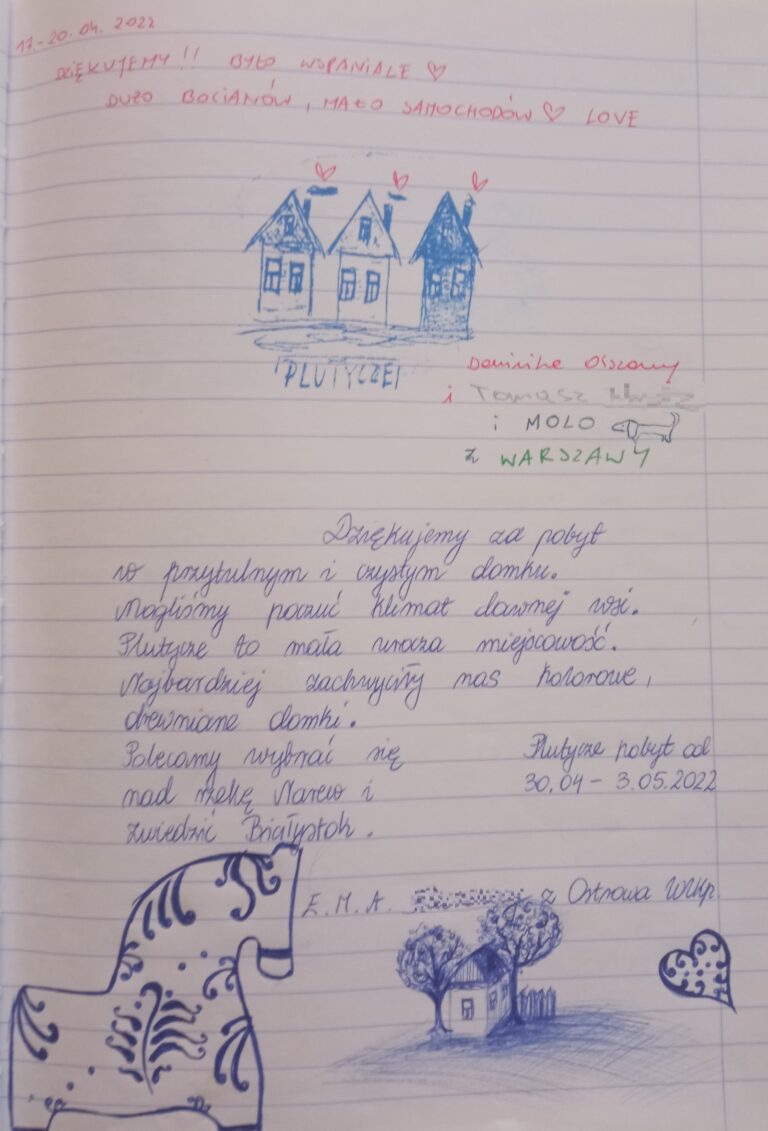 17.-20.04.2022
DZIĘKUJEMY!! BYŁO WSPANIALE ♡
DUŻO BOCIANÓW, MAŁO SAMOCHODÓW ♡ LOVE
PLUTYCZE
Dominika
i Tomasz
i MOLO
z WARSZAWY
Dziękujemy za pobyt
w przytulnym i czystym domku.
Mogliśmy poczuć klimat dawnej wsi.
Plutycze to mała urocza miejscowość.
Najbardziej zachwyciły nas kolorowe,
drewniane domki.
Polecamy wybrać się
nad rzekę Narew i
zwiedzić Białystok.
Plutycze pobyt od
30.04 - 3.05.2022
E.M.A. z Ostrowa Wlkp.